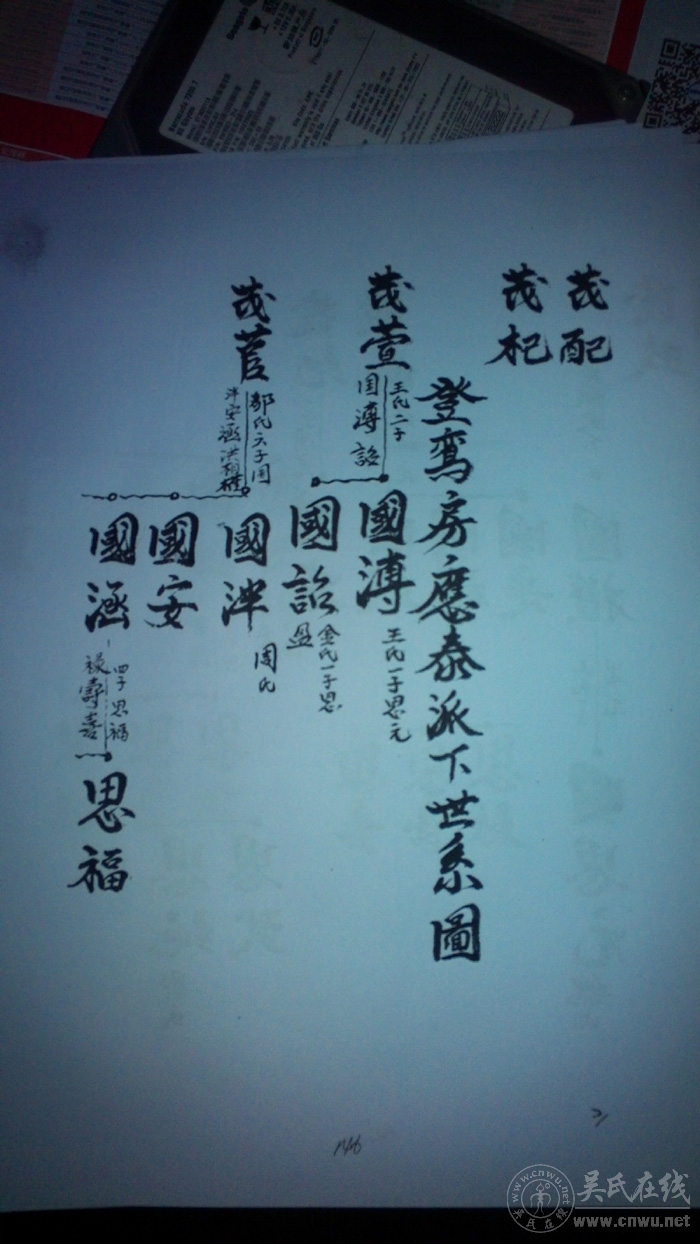 茂配
茂杞
登鸾房應泰派下世系圖
茂萱
王氏二子
國溥詔
國溥
王氏一子思元
國詔
金氏一子思
盈
茂菅
郭氏六子國
泮安涵洪
國泮
周氏
國安
國涵
四子思福
祿壽喜
思福
146
吴氏在线
www.cnwu.net